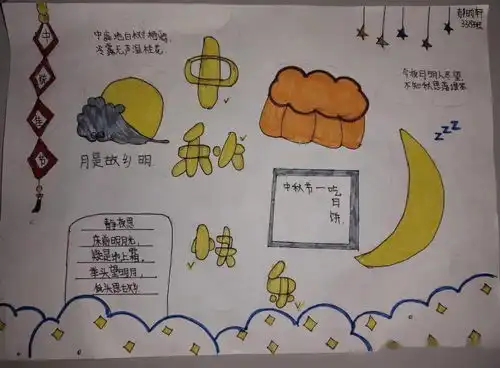 中秋佳节
中庭地白树栖鸦,
冷露无声湿桂花.
中
秋
快
乐
338班
今夜月明人尽望,
不知秋思落谁家
月是故乡明
zzz
中秋节一吃
月
饼.
静夜思
床前明月光,
疑是地上霜,
举头望明月,
低头思故乡